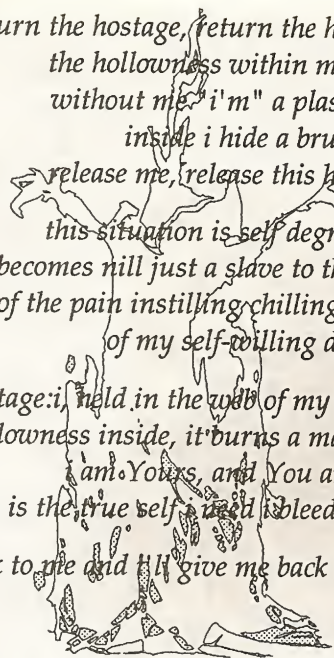 urn the hostage, return the h
the hollowness within m
without me "i'm" a plas
inside i hide a bru
release me, release this h
this situation is self degr
becomes nill just a slave to th
of the pain instilling chilling
of my self-willing d
tage:i, held in the web of my
lowness inside, it burns a ma
i am Yours, and You a
is the true self i need i bleed
to me and i'll give me back